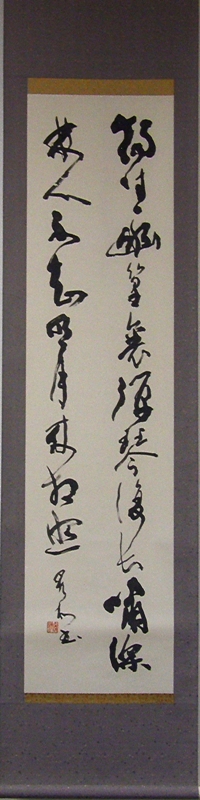 獨坐幽篁裏彈琴復長嘯深
林人不知明月来相照